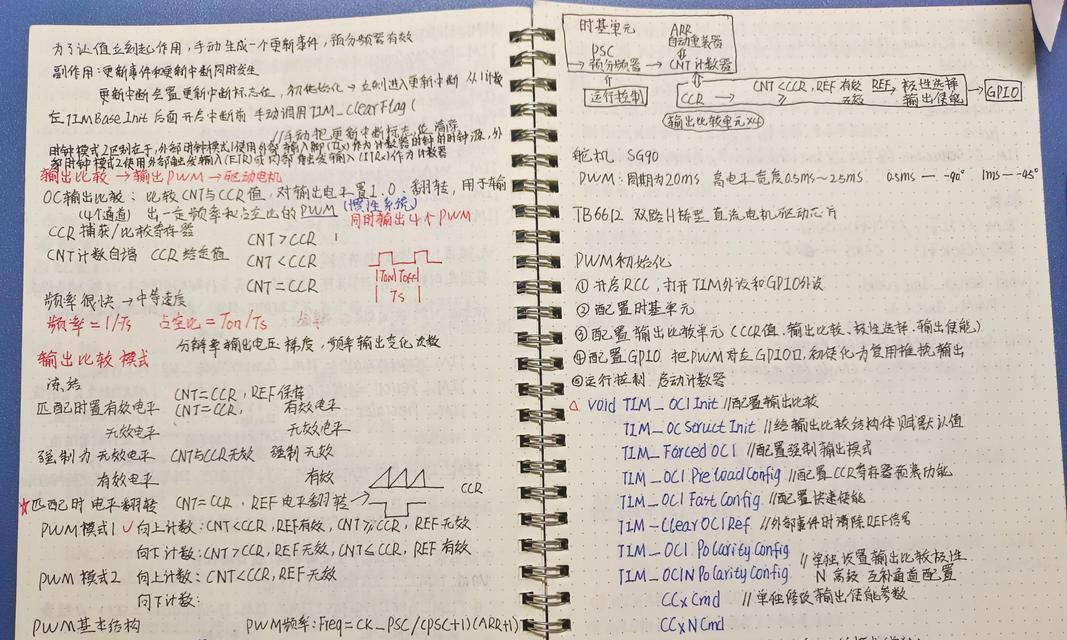 为了让值立刻起作用，手动生成一个更新事件，预分频器有效
副作用：更新事件和更新中断同时发生
更新中断会置更新中断标志位，初始化→立刻进入更新中断 从1计数
在TIMBase Init 后面 开启中断前 手动调用TIM_ClearFlag(
//手动把更新中断标志位清除
时钟模式2区别在于，外部时钟模式1使用外部输入脚(TIx)作为计数器时钟的时钟源，外
部时钟模式2使用外部触发输入(ETR)或内部触发输入(ITRx)作为计数器
输出比较→输出PWM→驱动电机
OC输出比较：比较CNT与CCR值，对输出电平置1.0、翻转，用于输
(4个通道) 出一定频率和占空比的PWM (惯性系统)
同时输出4个PWM
CCR 捕获/比较寄存器
CNT计数自增 CCR给定值
CNT>CCR
CNT<CCR
CNT=CCR
Ton Toff
Ts
频率很快→中等速度
频率=1/Ts 占空比=Ton/Ts
分辨率输出电压梯度，频率输出变化次数
输出比较模式
冻结 CNT=CCR，REF保持
匹配时置有效电平 CNT=CCR， 有效电平
无效电平 无效电平
强制为 无效电平 CNT与CCR无效 强制无效
有效电平 有效
CCR
☆匹配时电平翻转 CNT=CCR，REF电平翻转→
PWM模式1 √ 向上计数：CNT<CCR，REF有效，CNT≥CCR，REF无效
向下计数：CNT>CCR，REF无效，CNT≤CCR，REF有效
PWM模式2 向上计数：CNT<CCR，REF无效
向下计数：
PWM基本结构 PWM频率：Freq=CK_PSC/(PSC+1)(ARR+1)
时基单元 ARR
自动重装器
PSC
→预分频器→CNT计数器
运行控制
CCR → CNT<CCR，REF有效 REF 极性选择 → GPIO
≥ 无效 输出使能
输出比较单元x4
舵机 SG90
PWM：周期为20ms 高电平宽度0.5ms～2.5ms 0.5ms — -90° 1ms — -45°
TB6612 双路H桥型直流电机驱动芯片
PWM初始化
① 开启RCC，打开TIM外设和GPIO外设
② 配置时基单元
③ 配置输出比较单元(CCR值、输出比较、极性选择、输出使能)
④ 配置GPIO 把PWM对应GPIO口，初使化为复用推挽输出
⑤ 运行控制 启动计数器
△ void TIM_OC1Init //配置输出比较
TIM_OC Struct Init //给输出比较结构体赋默认值
TIM_Forced OC1 //配置强制输出模式
TIM_OC1 PreloadConfig //配置CCR寄存器预装功能
TIM_OC1 FastConfig //配置快速使能
TIM-ClearOC1Ref //外部事件时清除REF信号
TIM_OC1 PolarityConfig //单独设置输出比较极性
TIM_OC1N PolarityConfig N 高级 互补通道配置
CCxCmd //单独修改输出使能参数
CCxNCmd